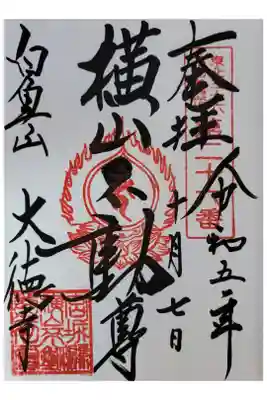 奉拝
令和五年
十月七日
横山不動尊
白魚山
大徳寺